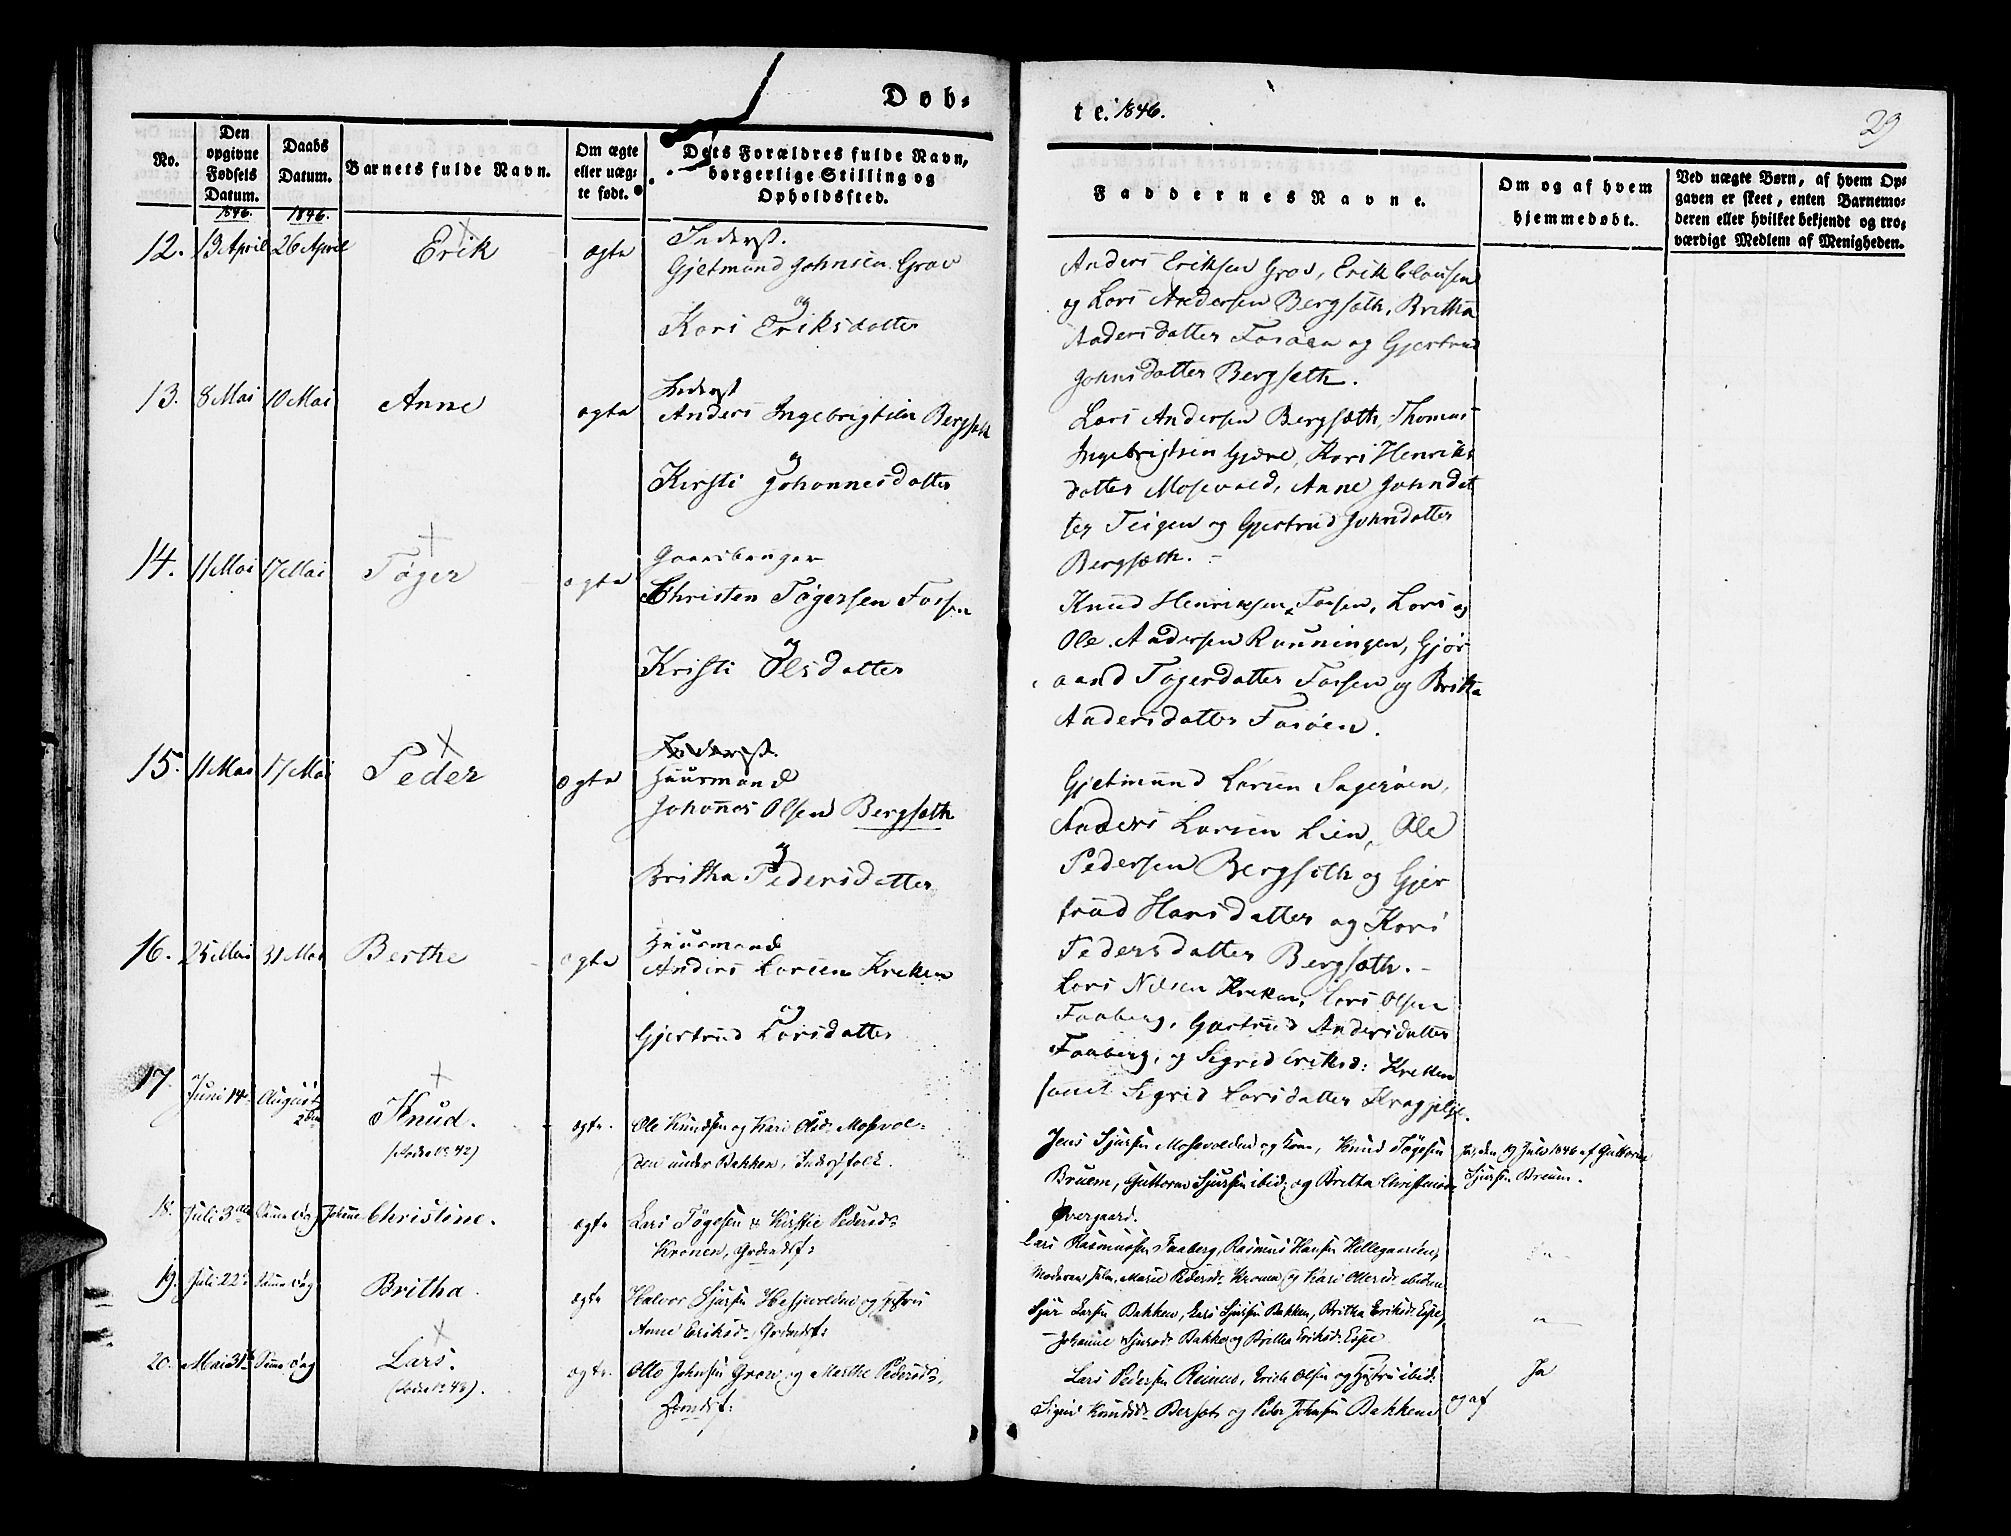 Døb-
te. 1846.
29
No.
Den opgivne Fødsels Datum.
Daabs Datum.
Barnets fulde Navn.
Om ægte eller uæg-te født.
Dets Forældres fulde Navn, borgerlige Stilling og Opholdssted.
Faddernes Navne.
Om og af hvem hjemmedøbt.
Ved uægte Børn, af hvem Op-
gaven er skeet, enten Barnemo-
deren eller hvilket bekjendt og tro-
værdigt Medlem af Menigheden.
1846. 1846.
12. 13 April 26 April Erik ægte Inderst.
Gjetmund Johnsen Grov
og
Kari Eriksdatter
Anders Eriksen Grov, Erik Clausen
og Lars Andersen Bergsæth, Britha
Andersdatter Fosøen og Gjertrud
Johnsdatter Bergsæth.
13. 8 Mai 10 Mai Anne ægte Inderst
Anders Ingebrigtsen Bergsæth
og
Kirsti Johannesdatter
Lars Andersen Bergsæth, Thomas
Ingebrigtsen Gjære, Kari Henriks
datter Mosevold, Anne Johndat
ter Teigen og Gjertrud Johndatter
Bergsæth.
14. 11 Mai 17 Mai Tøger ægte Gaardbruger
Christen Tøgersen Fossen
og
Kristi Olsdatter
Knud Henriksen Fossen, Lars og
Ole Andersen Runningen, Gjør
aand Tøgerdatter Fossen og Britha
Andersdatter Fosøen.
15. 11 Mai 17 Mai Peder ægte Inderst.
Huusmand
Johannes Olsen Bergsæth
og
Britha Pedersdatter
Gjetmund Larsen Sagerøen,
Anders Larsen Lien, Ole
Pedersen Bergsæth og Gjer
trud Hansdatter og Kari
Pedersdatter Bergsæth.
16. 25 Mai 31 Mai Berthe ægte Huusmand
Anders Larsen Kreken
og
Gjertrud Larsdatter
Lars Nilsen Kreken, Lars Olsen
Faaberg, Gjertrud Andersdatter
Faaberg, og Sigrid Eriksd: Kreken
samt Sigrid Larsdatter
17. Juni 14 August 2den Knud. ægte. Ole Knudsen og Kari Olsd: Mosvol-
(Sædse No 42) den under Bakken, Inderstfolk.
Jens Sjursen Mosevolden og Kone, Knud Tøgesen
Bruem, Guttorm Sjursen ibid: og Britha
Øvergaard.
Ja, den 19 Juli 1846 af Guttorm
Sjursen Bruem.
18. Juli 3die Samme Dag Johanne Christine. ægte Lars Tøgesen & Kirstie Pedersd:
Kronen, Grdmdsf:
Lars Rasmussen Faaberg, Rasmus Hansen Hellegaarden,
Moderen selv, Marie Pedersd: Kronen og Kari
19. Juli 22 Samme Dag Britha. ægte Halvor Sjursen og Hustru
Anne Eriksd: Grdmdsf:
Sjur Larsen Bakken, Lars Sjursen Bakken, Britha Eriksd: Espe,
Johanne Sjursd: Bakken og Britha Eriksd: Espe
20. Mai 31te Samme Dag Lars. ægte. Otto Johnsen Grov og Marthe Pedersd:,
Lars Pedersen Reinen, Erick Olsen og Hustru ibid:
Sigrid Knudsd: Bersæt og Peder Johnsen Bakken
Ja
og af